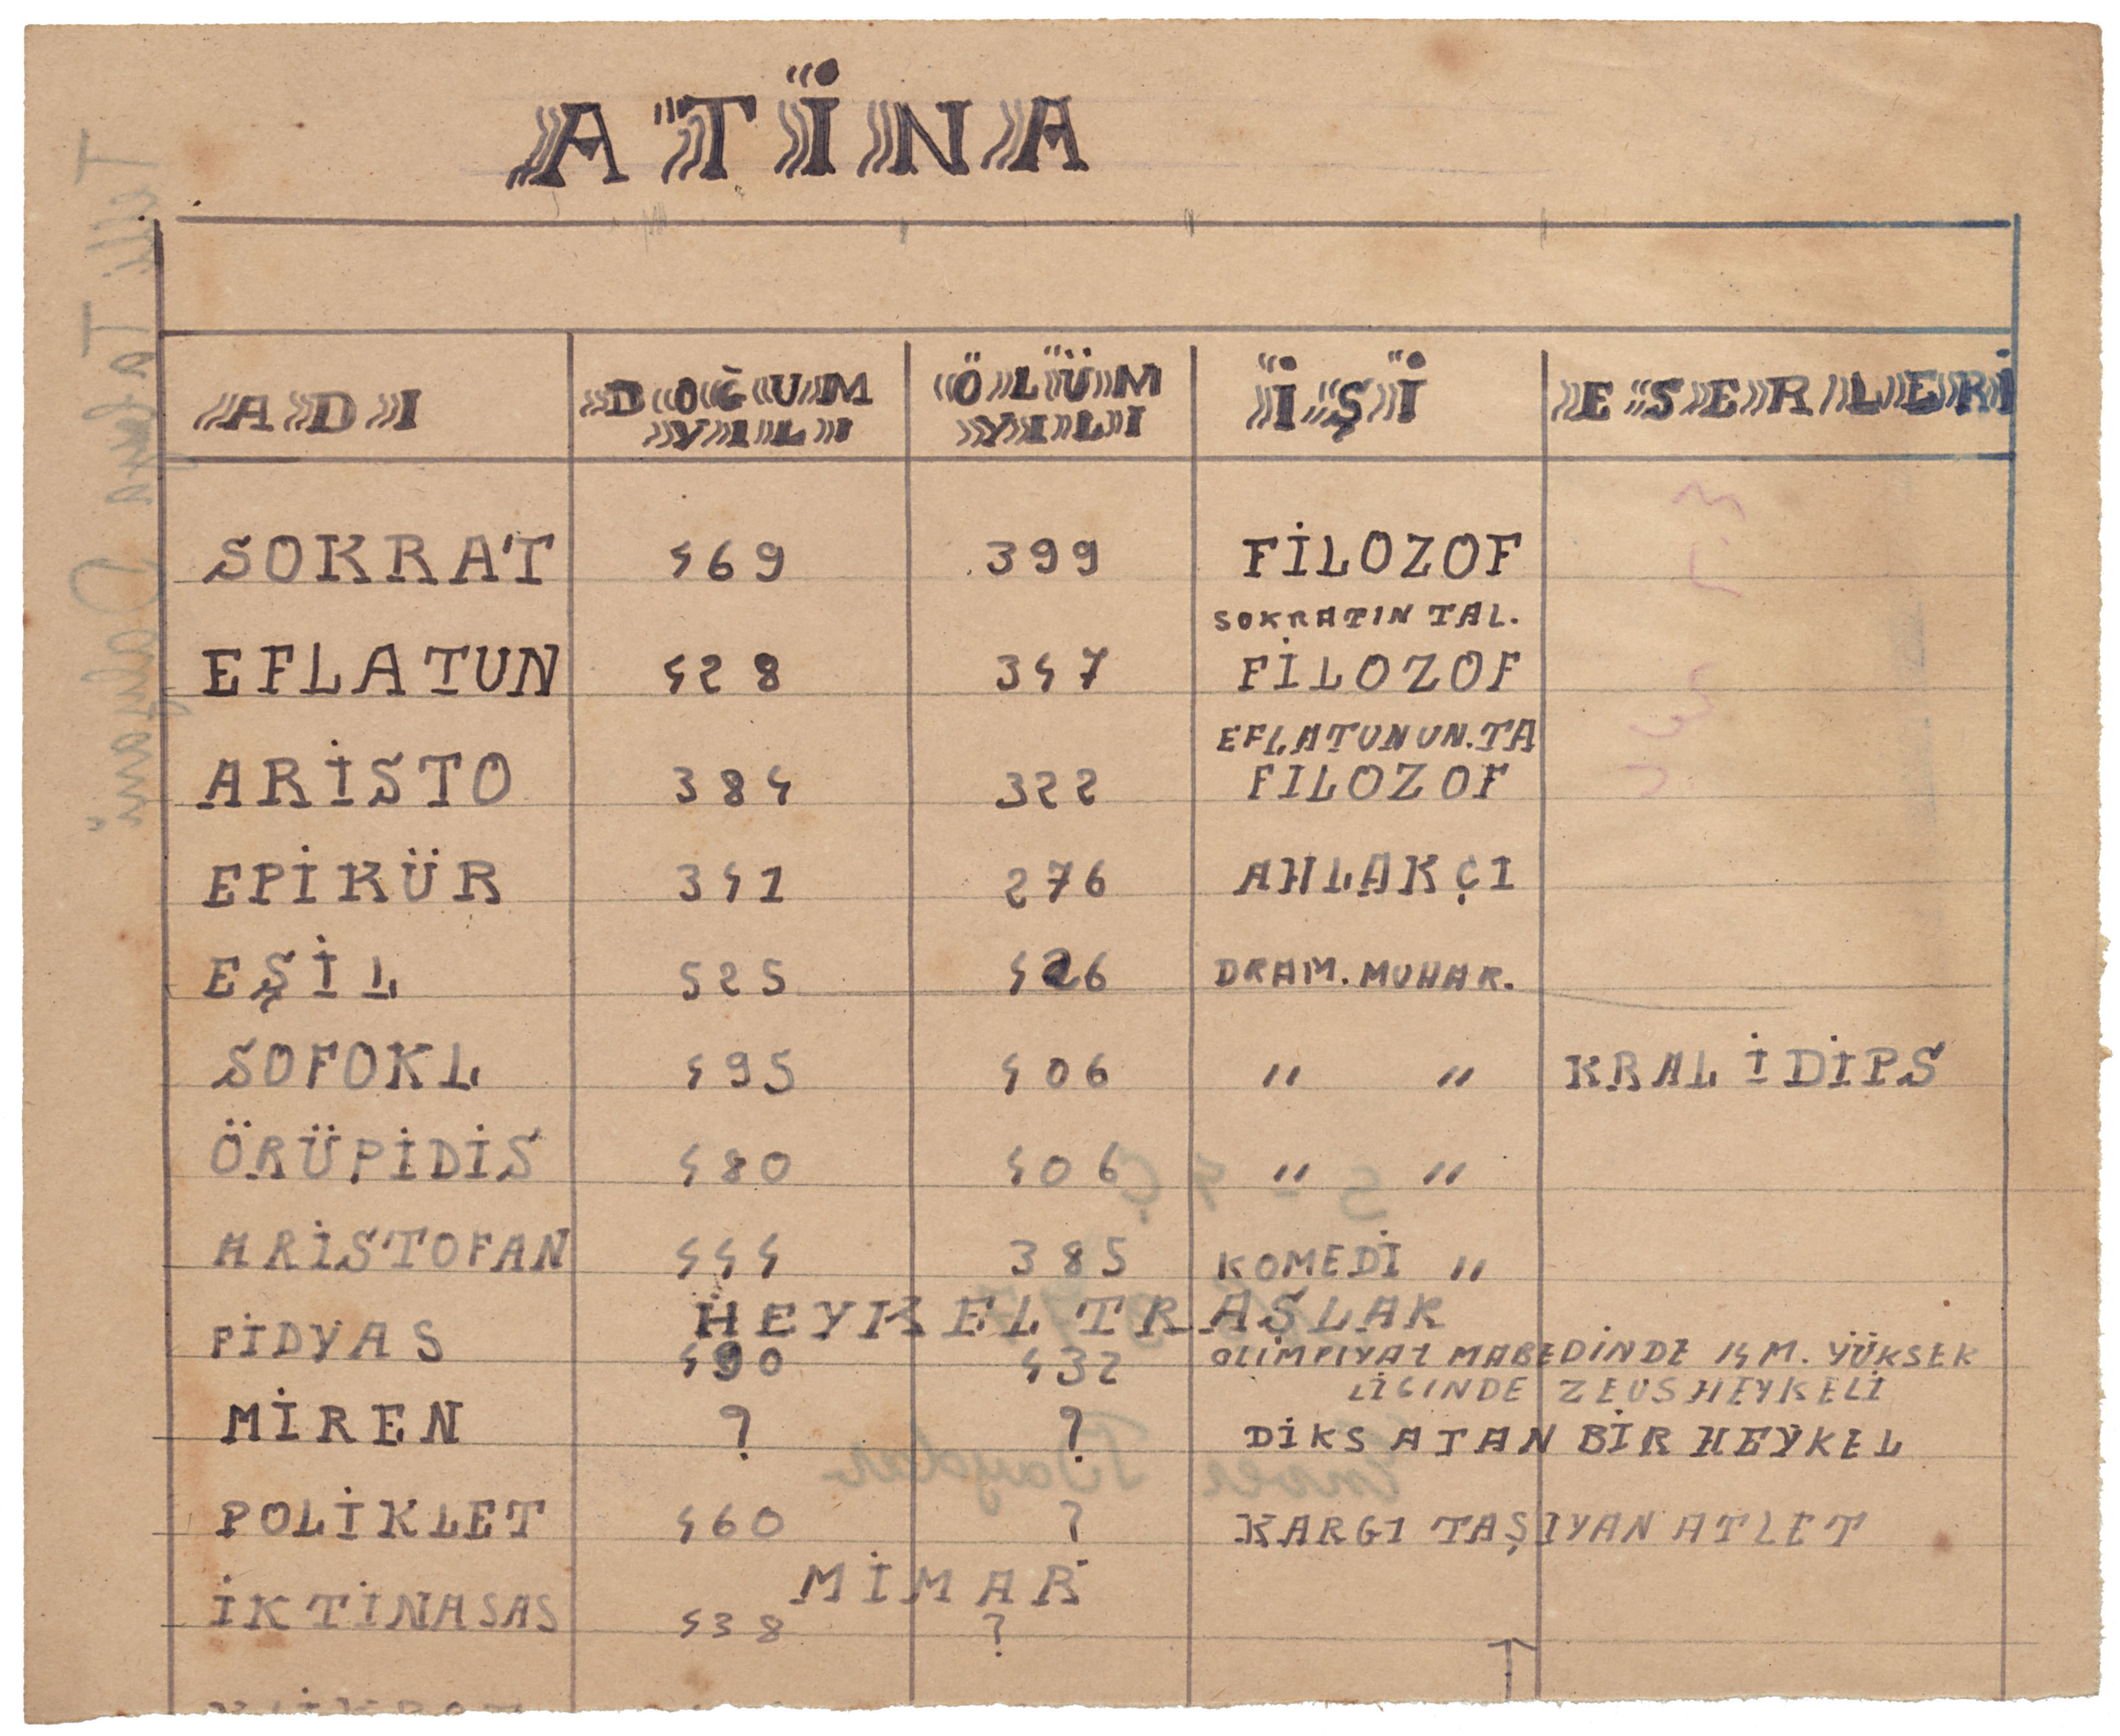 ATİNA
ADI DOĞUM YILI ÖLÜM YILI İŞİ ESERLERİ
SOKRAT 469 399 FİLOZOF
SOKRATIN TAL.
EFLATUN 428 347 FİLOZOF
EFLATUNUN.TA
ARİSTO 384 322 FILOZOF
EPİKÜR 341 276 AHLAKÇI
EŞİL 525 426 DRAM. MUHAR.
SOFOKL 495 406 " " KRAL İDİPS
ÖRÜPİDİS 480 406 " "
ARİSTOFAN 444 385 KOMEDİ "
HEYKELTRAŞLAR
FİDYAS 490 432 OLİMPIYAT MABEDİNDE 14 M. YÜKSEK
LİGINDE ZEUS HEYKELİ
MİREN ? ? DİKS ATAN BİR HEYKEL
POLİKLET 460 ? KARGI TAŞIYAN ATLET
MİMAR
İKTİNASAS 438 ?